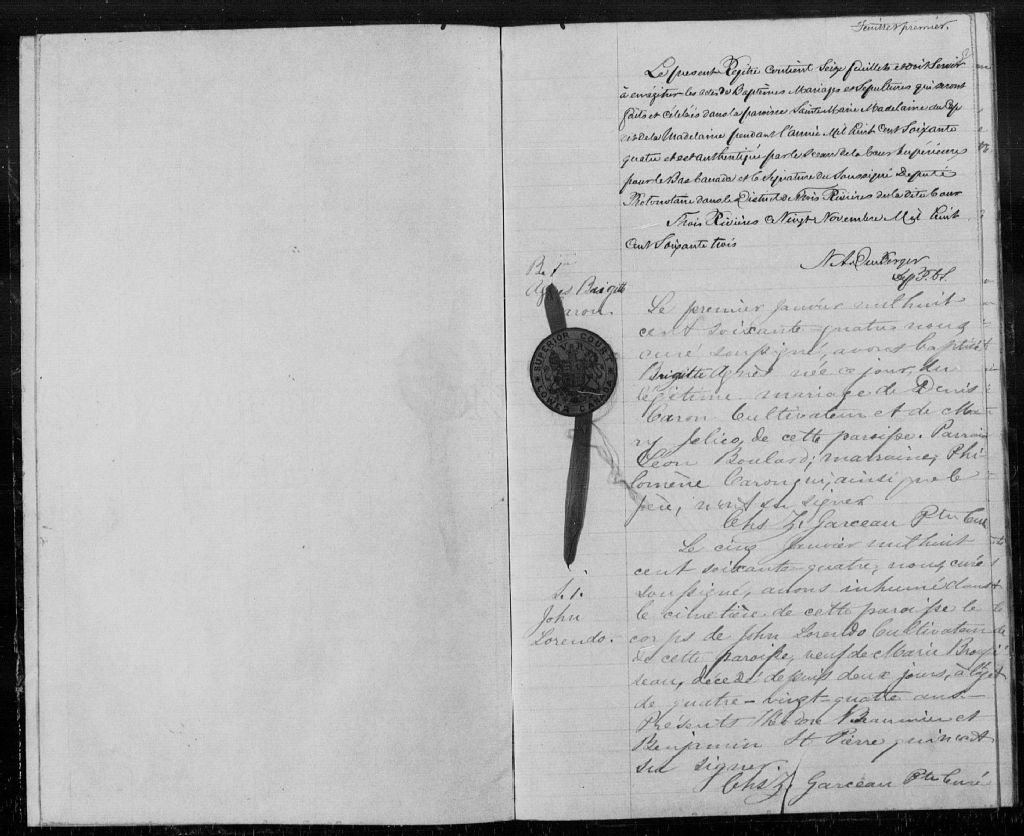 Feuillet premier.
Le présent Registre contient Seize feuillets et doit Servir
à enrégitrer les actes de Baptêmes Mariages et Sépultures qui seront
faits et célébrés dans la paroisse Sainte Marie Madelaine du Cap
de la Madelaine pendant l'année Mil huit Cent Soixante
quatre et est authentiqué par le Sceau de la Cour Supérieure
pour le Bas Canada et la Signature du Soussigné Député
Protonotaire dans le District de Trois Rivières de la dite Cour
Trois Rivières ce Vingt Novembre Mil huit
Cent Soixante trois
Dep P.C.S.
B. 1
Agnes Brigitte
Caron.
Le premier Janvier mil huit
cent soixante-quatre nous
curé soussigné, avons baptisé
Brigitte Agnès née ce jour, du
légitime mariage de Denis
Caron Cultivateur et de Ma-
ry Jelico, de cette paroisse. Parrain
Léon Boulard; marraine, Phi-
lomène Caron qui, ainsi que le
père, n'ont su signer
Chs Z. Garceau Ptre Curé
SUPERIOR COURT
LOWER CANADA
S. 1.
John
Lorendo.
Le cinq Janvier mil huit
cent soixante-quatre, nous curé
soussigné, avons inhumé dans
le cimetière de cette paroisse le
corps de John Lorendo Cultivateur
de cette paroisse, veuf de Marie Brous-
seau, décédé depuis deux jours, à l'âge
de quatre-vingt-quatre ans.
Présents Théodore Beaumier et
Benjamin St. Pierre qui n'ont
su signer.
Chs Z. Garceau Ptre Curé